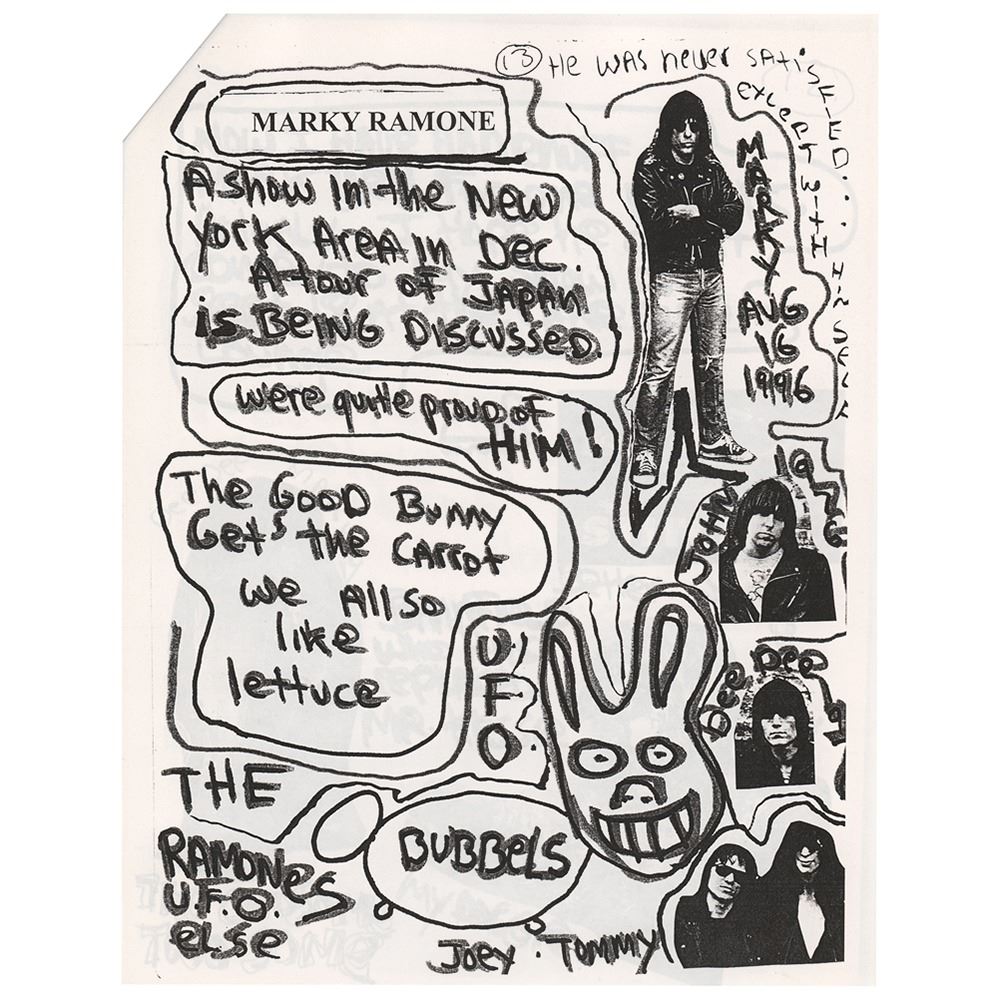 13 He was never satisfied..
except with himself
MARKY RAMONE
A show in the New
York Area in Dec.
A tour of JAPAN
is BEING DISCUSSED.
MARKY
AUG
16
1996
We're quite proud of
HIM!
The GOOD Bunny
Gets the CARROT
we All so
like
lettuce
1976
JOHN
U
F
O
Dee Dee
THE
RAMONes
U.F.O.
else
BUBBELS
Joey . Tommy